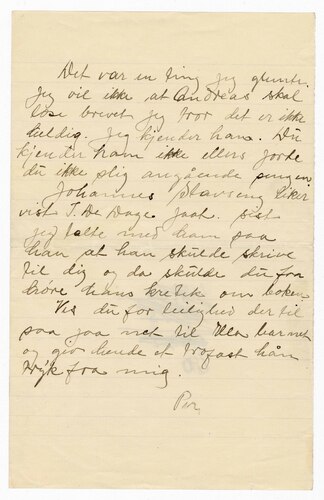 Det var en ting jeg glemte
Jeg vil ikke at Andreas skal
læse brevet jeg tror det er ikke
heldig. Jeg kjender ham. Du
kjender ham ikke ellers jorde
du ikke slig angåande pengen
Johannes liker
vist I. De Dage. saat. sist
jeg talte med ham saa
han at han skulde skrive
til dig og da skulde du fra
høre hans kretik om boken
Vis du før leilighed der til
saa jaa net til Ula barnet
og giv hende et trofast hån
tryk fra mig.
Per